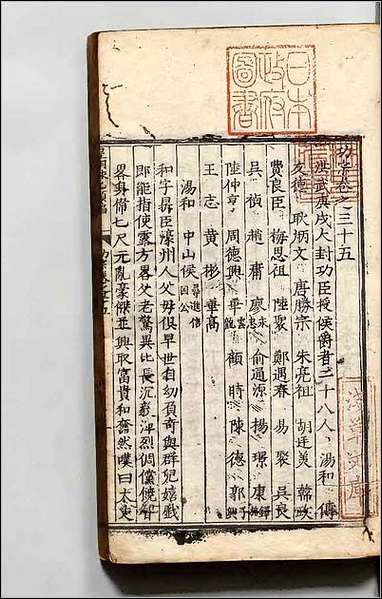 日本
政府
圖書
淺草文庫
功臣卷之三十五
洪武庚戌大封功臣授侯爵者二十八人湯和 傅
友德 耿炳文 唐勝宗 朱亮祖 胡廷美 韓政
費良臣 梅思祖 陸聚 鄭遇春 易聚 吳良
吳禎 趙庸 廖永忠 俞通源 楊璟 康鐸
陸仲亨 周德興 華雲龍 顧時 陳德 郭興
王志 黃彬 華高
湯和 中山侯 尋進信國公
和字鼎臣濠州人父母俱早世自幼負奇與群兒嬉戲
即能指使露方畧父老驚異比長沉毅洊烈倜儻饒智
畧身俻七尺元亂豪傑並興取富貴和奮然嘆曰大丈